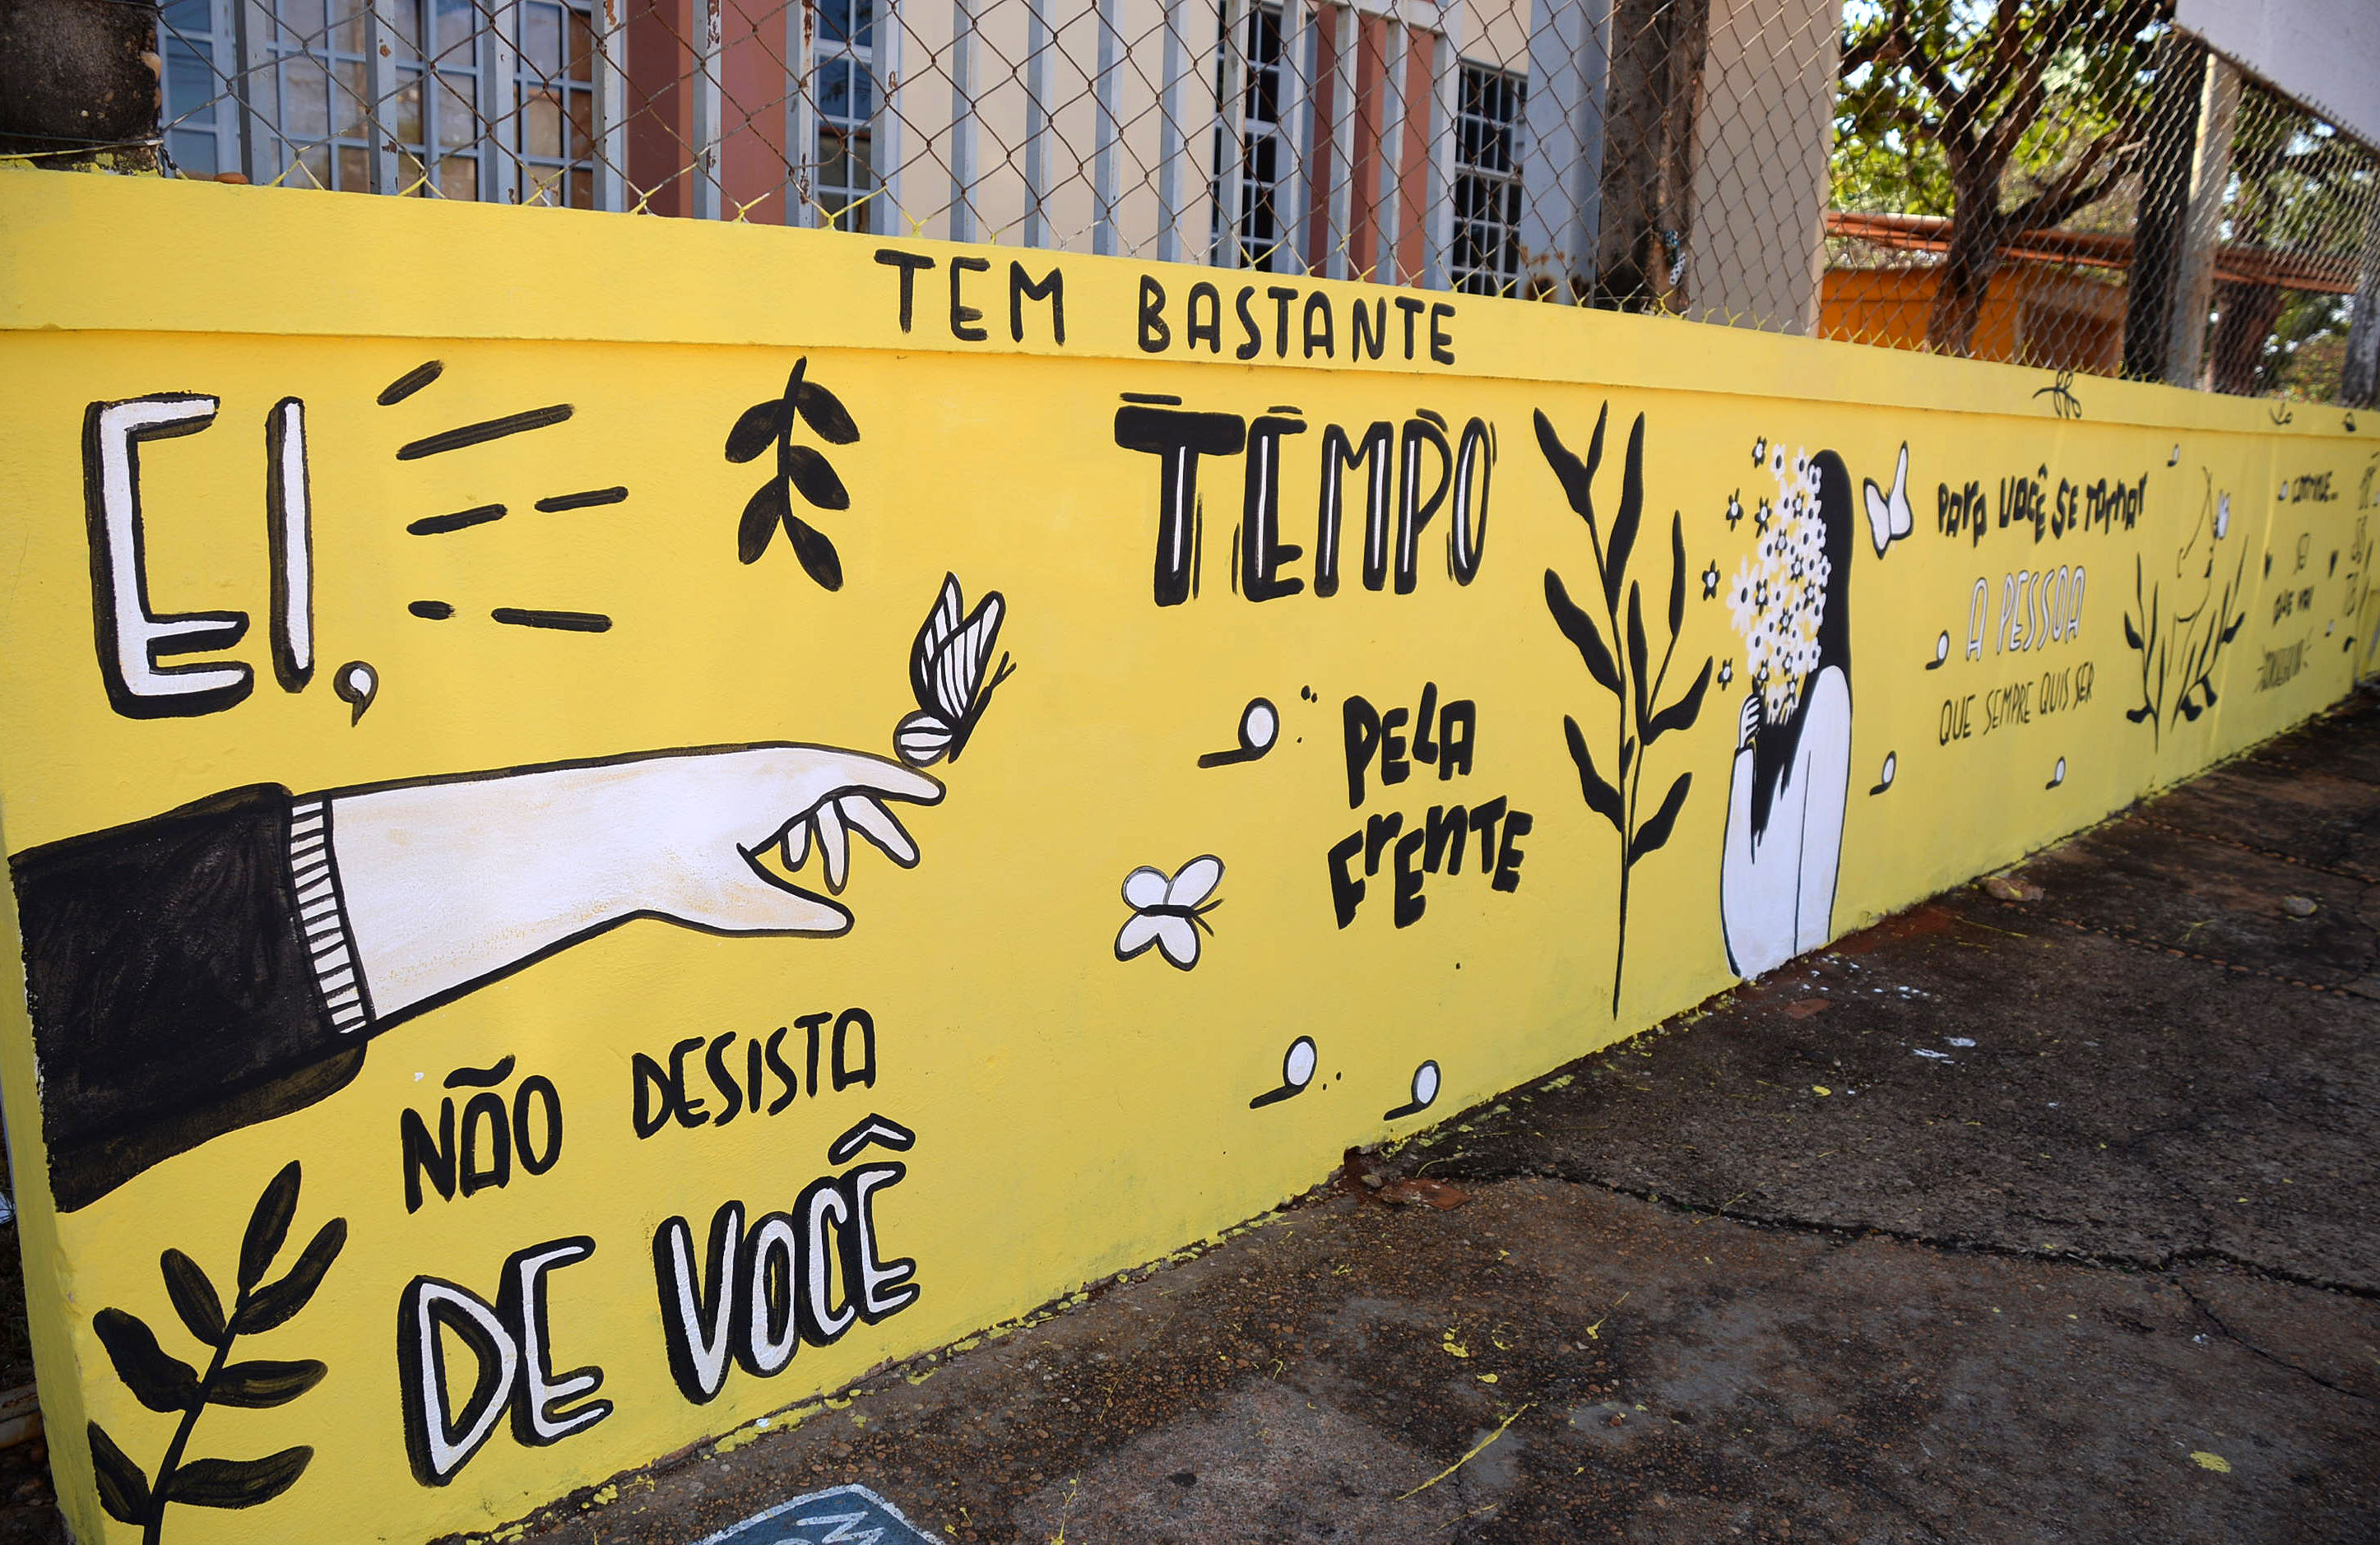 EI,
NÃO DESISTA
DE VOCÊ
TEM BASTANTE
TEMPO
PELA
FRENTE
PARA VOCÊ SE TORNAR
A PESSOA
QUE SEMPRE QUIS SER
CONTINUE...
QUE VAI